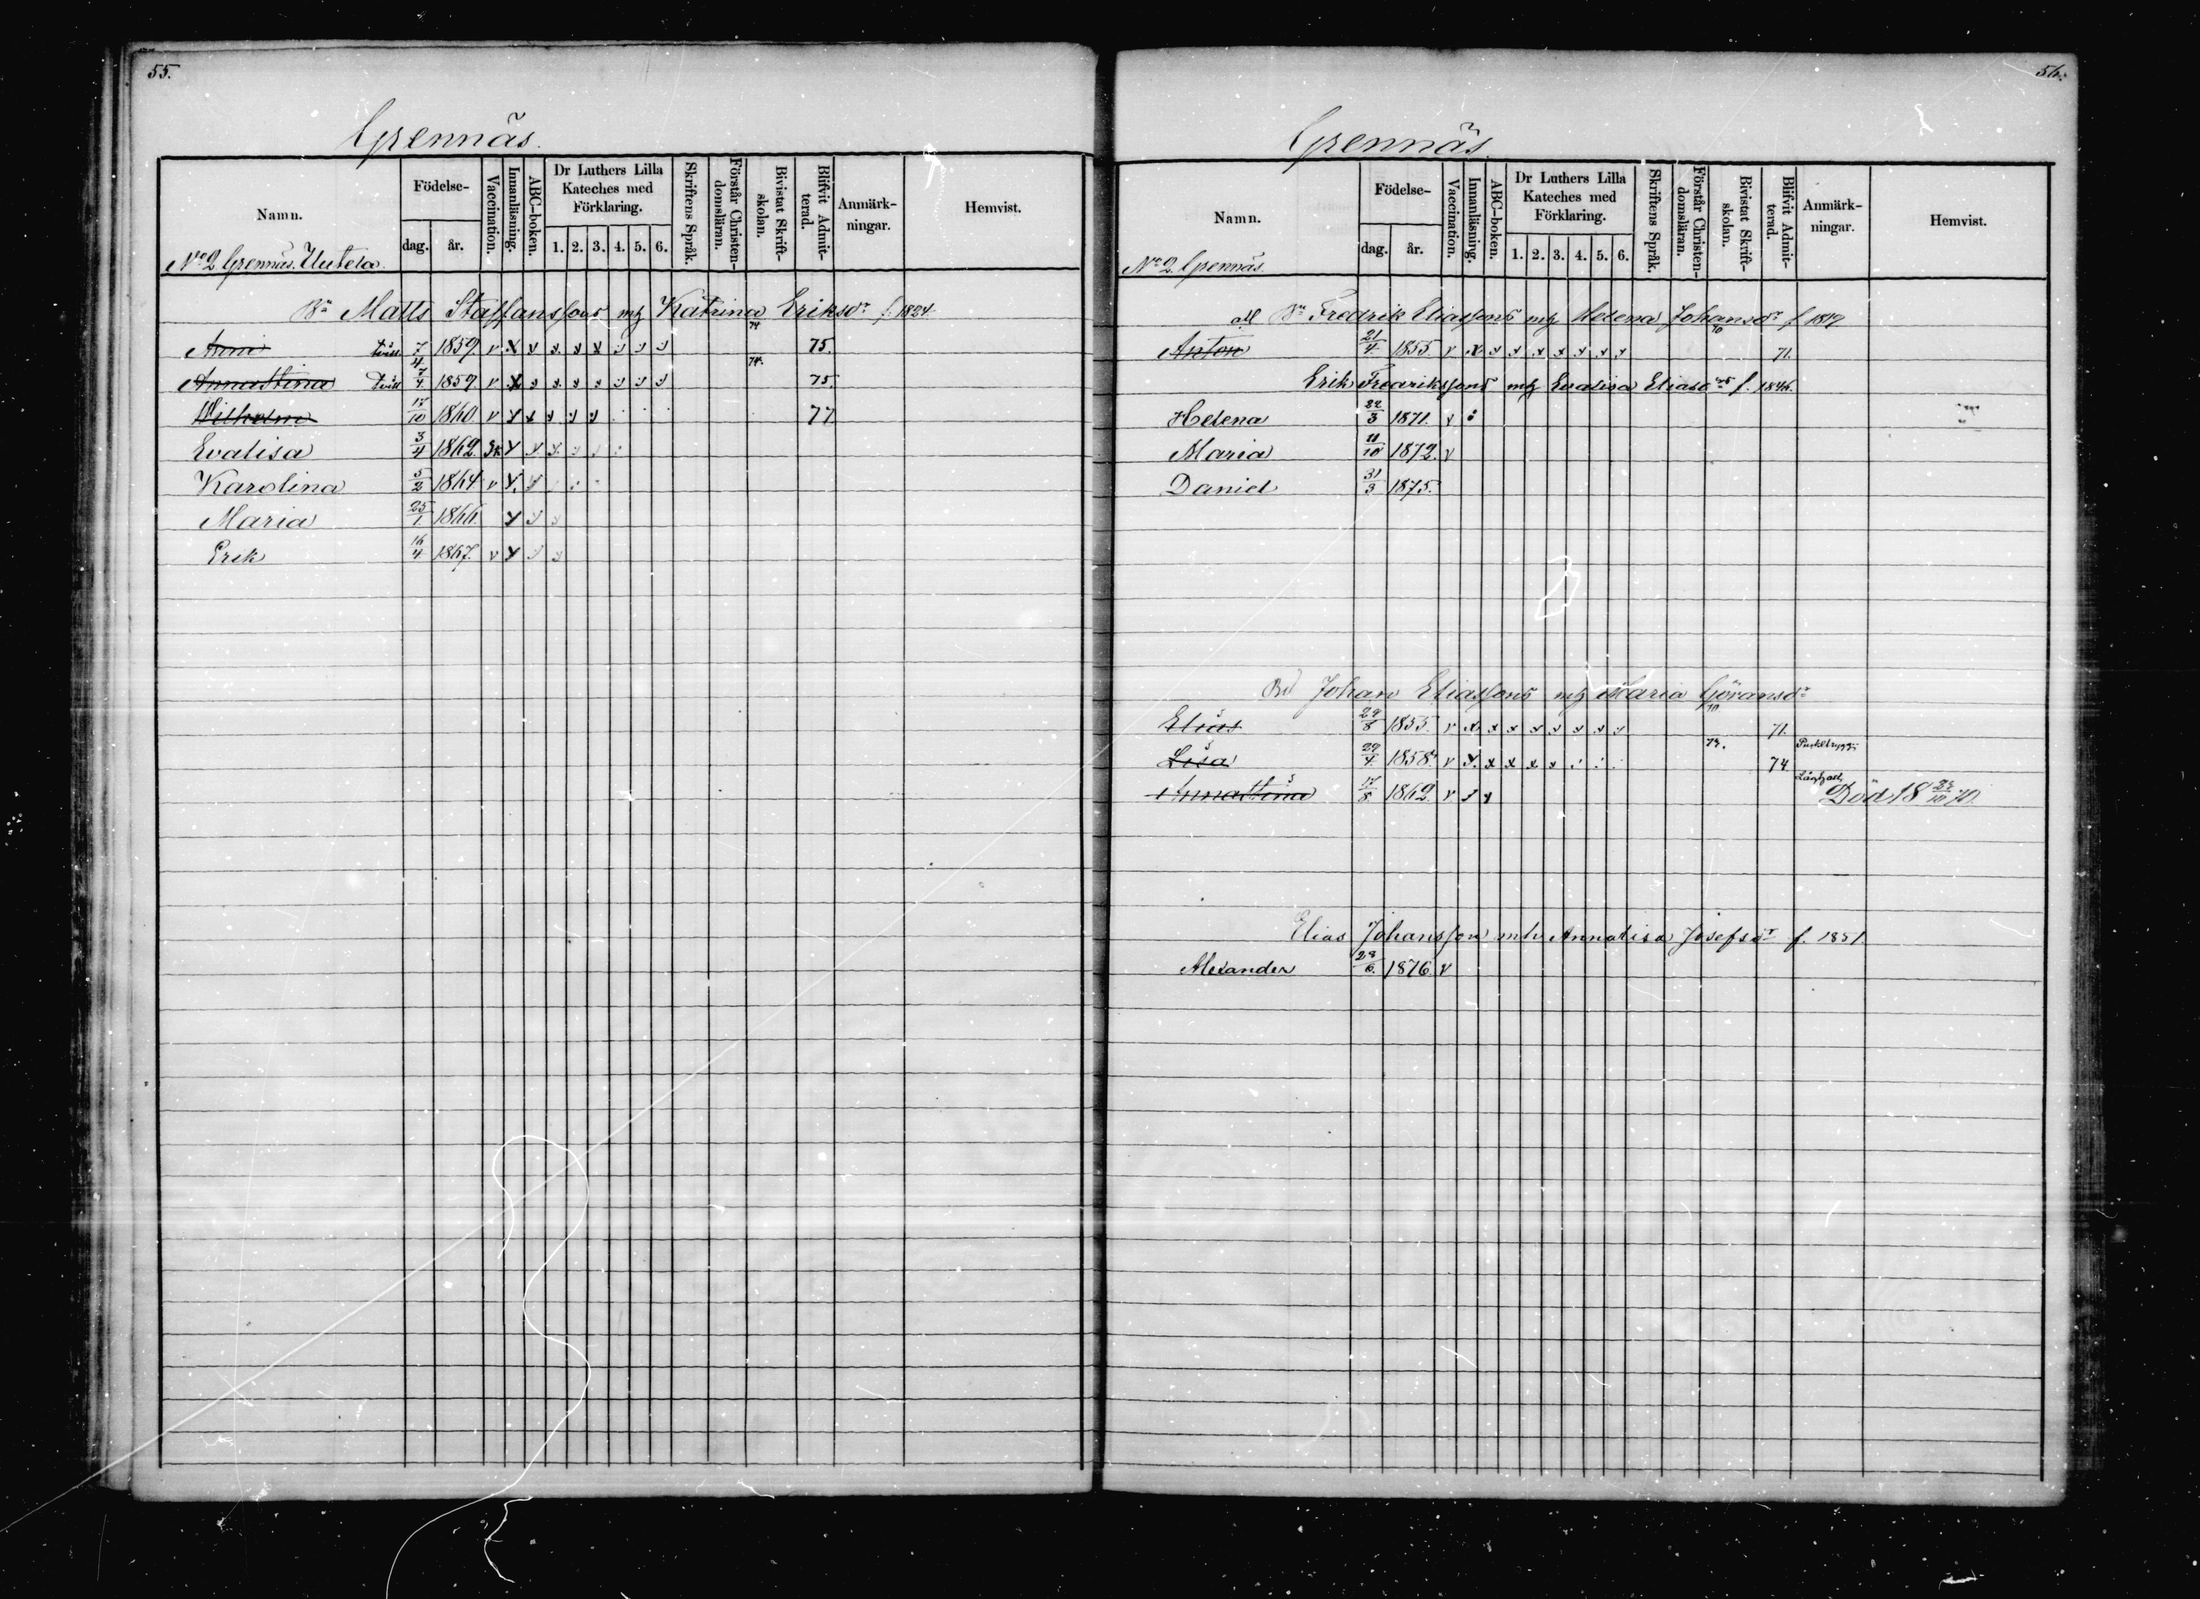 55.
Grennäs.
Namn.
Födelse-
dag. år.
Vaccination.
Innanläsning.
ABC-boken.
Dr Luthers Lilla Kateches med Förklaring.
1. 2. 3. 4. 5. 6.
Skriftens Språk.
Förstår Christendomsläran.
Bivistat Skriftskolan.
Blifvit Admitterad.
Anmärkningar.
Hemvist.
No 2 Grennäs. Uutela.
Matts Staffanssons Katrina Eriksdr f. 1824.
Anni tvill. 7/4 1859 v 74 75.
Annastina tvill 7/4 1859 v 74. 75.
Wilhelm 17/10 1860 v 77
Evalisa 3/4 1862.
Karolina 5/2 1864 v
Maria 25/1 1866.
Erik 16/4 1867. v
56.
Grennäs.
Namn.
Födelse-
dag. år.
Vaccination.
Innanläsning.
ABC-boken.
Dr Luthers Lilla Kateches med Förklaring.
1. 2. 3. 4. 5. 6.
Skriftens Språk.
Förstår Christendomsläran.
Bivistat Skriftskolan.
Blifvit Admitterad.
Anmärkningar.
Hemvist.
No 2. Grennäs.
Fredrik Eliassons Helena Johansdr f. 1819
Anton 21/4 1855. v 70 71.
Erik Fredrikssons Evalisa Eliasdr f. 1846.
Helena 22/3 1871. v
Maria 11/10 1872. v
Daniel 31/3 1875.
Johan Eliassons Maria Göransdr
Elias 29/8 1855. v 70 71.
Lisa 29/4 1858. v 73. 74
Annastina 17/8 1862. v Död 18 22/10 70.
Elias Johansson Annalisa Josefsdr f. 1851.
Alexander 29/6 1876. v